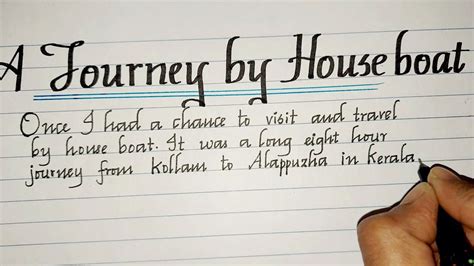 A Journey by House boat
Once I had a chance to visit and travel
by house boat. It was a long eight hour
journey from Kollam to Alappuzha in Kerala,